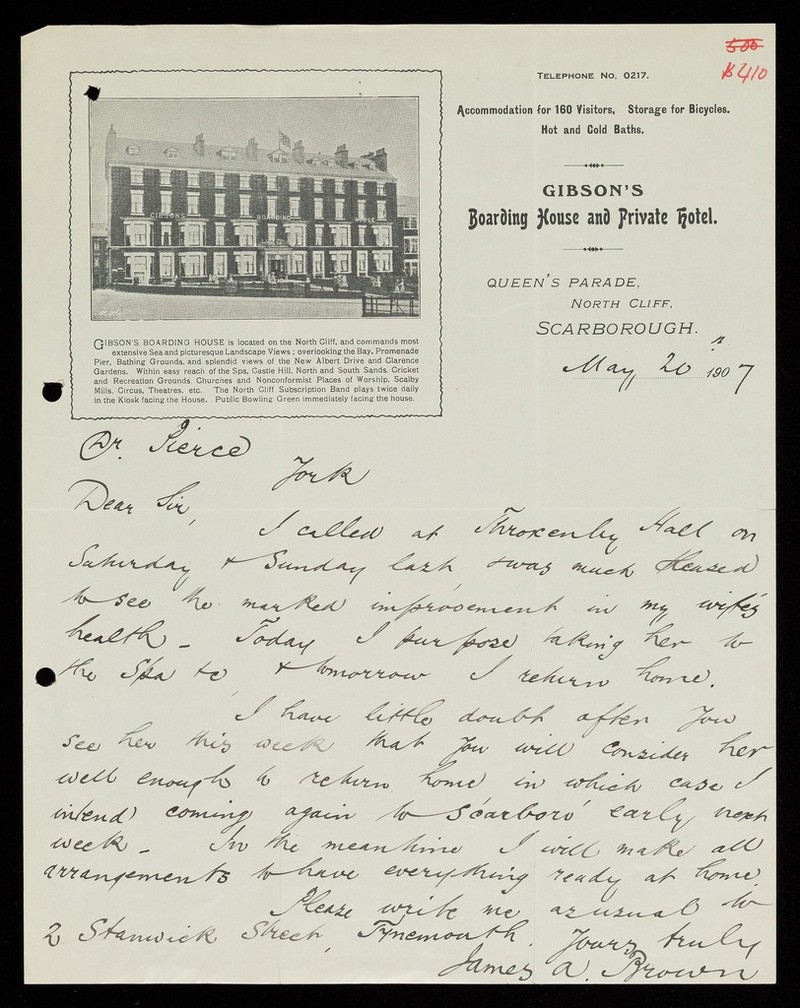 500
B410
TELEPHONE NO. 0217.
Accommodation for 160 Visitors, Storage for Bicycles.
Hot and Cold Baths.
GIBSON'S
Boarding House and Private Hotel.
QUEEN'S PARADE,
NORTH CLIFF,
SCARBOROUGH.
May 20th 1907
GIBSONS BOARDING HOUSE
GIBSON'S BOARDING HOUSE is located on the North Cliff, and commands most
extensive Sea and picturesque Landscape Views; overlooking the Bay, Promenade
Pier, Bathing Grounds, and splendid views of the New Albert Drive and Clarence
Gardens. Within easy reach of the Spa, Castle Hill, North and South Sands, Cricket
and Recreation Grounds, Churches and Nonconformist Places of Worship, Scalby
Mills, Circus, Theatres, etc. The North Cliff Subscription Band plays twice daily
in the Kiosk facing the House. Public Bowling Green immediately facing the house.
Dr. Pierce
York
Dear Sir,
I called at Throxenby Hall on
Saturday & Sunday last, & was much pleased
to see the marked improvement in my wife's
health - Today I purpose taking her to
the Spa &c, & tomorrow I return home.
I have little doubt after you
see her this week that you will consider her
well enough to return home in which case I
intend coming again to Scarboro' early next
week - In the meantime I will make all
arrangements to have everything ready at home.
Please write me as usual to
2 Stanwick Street, Tynemouth. Yours truly
James A. Brown